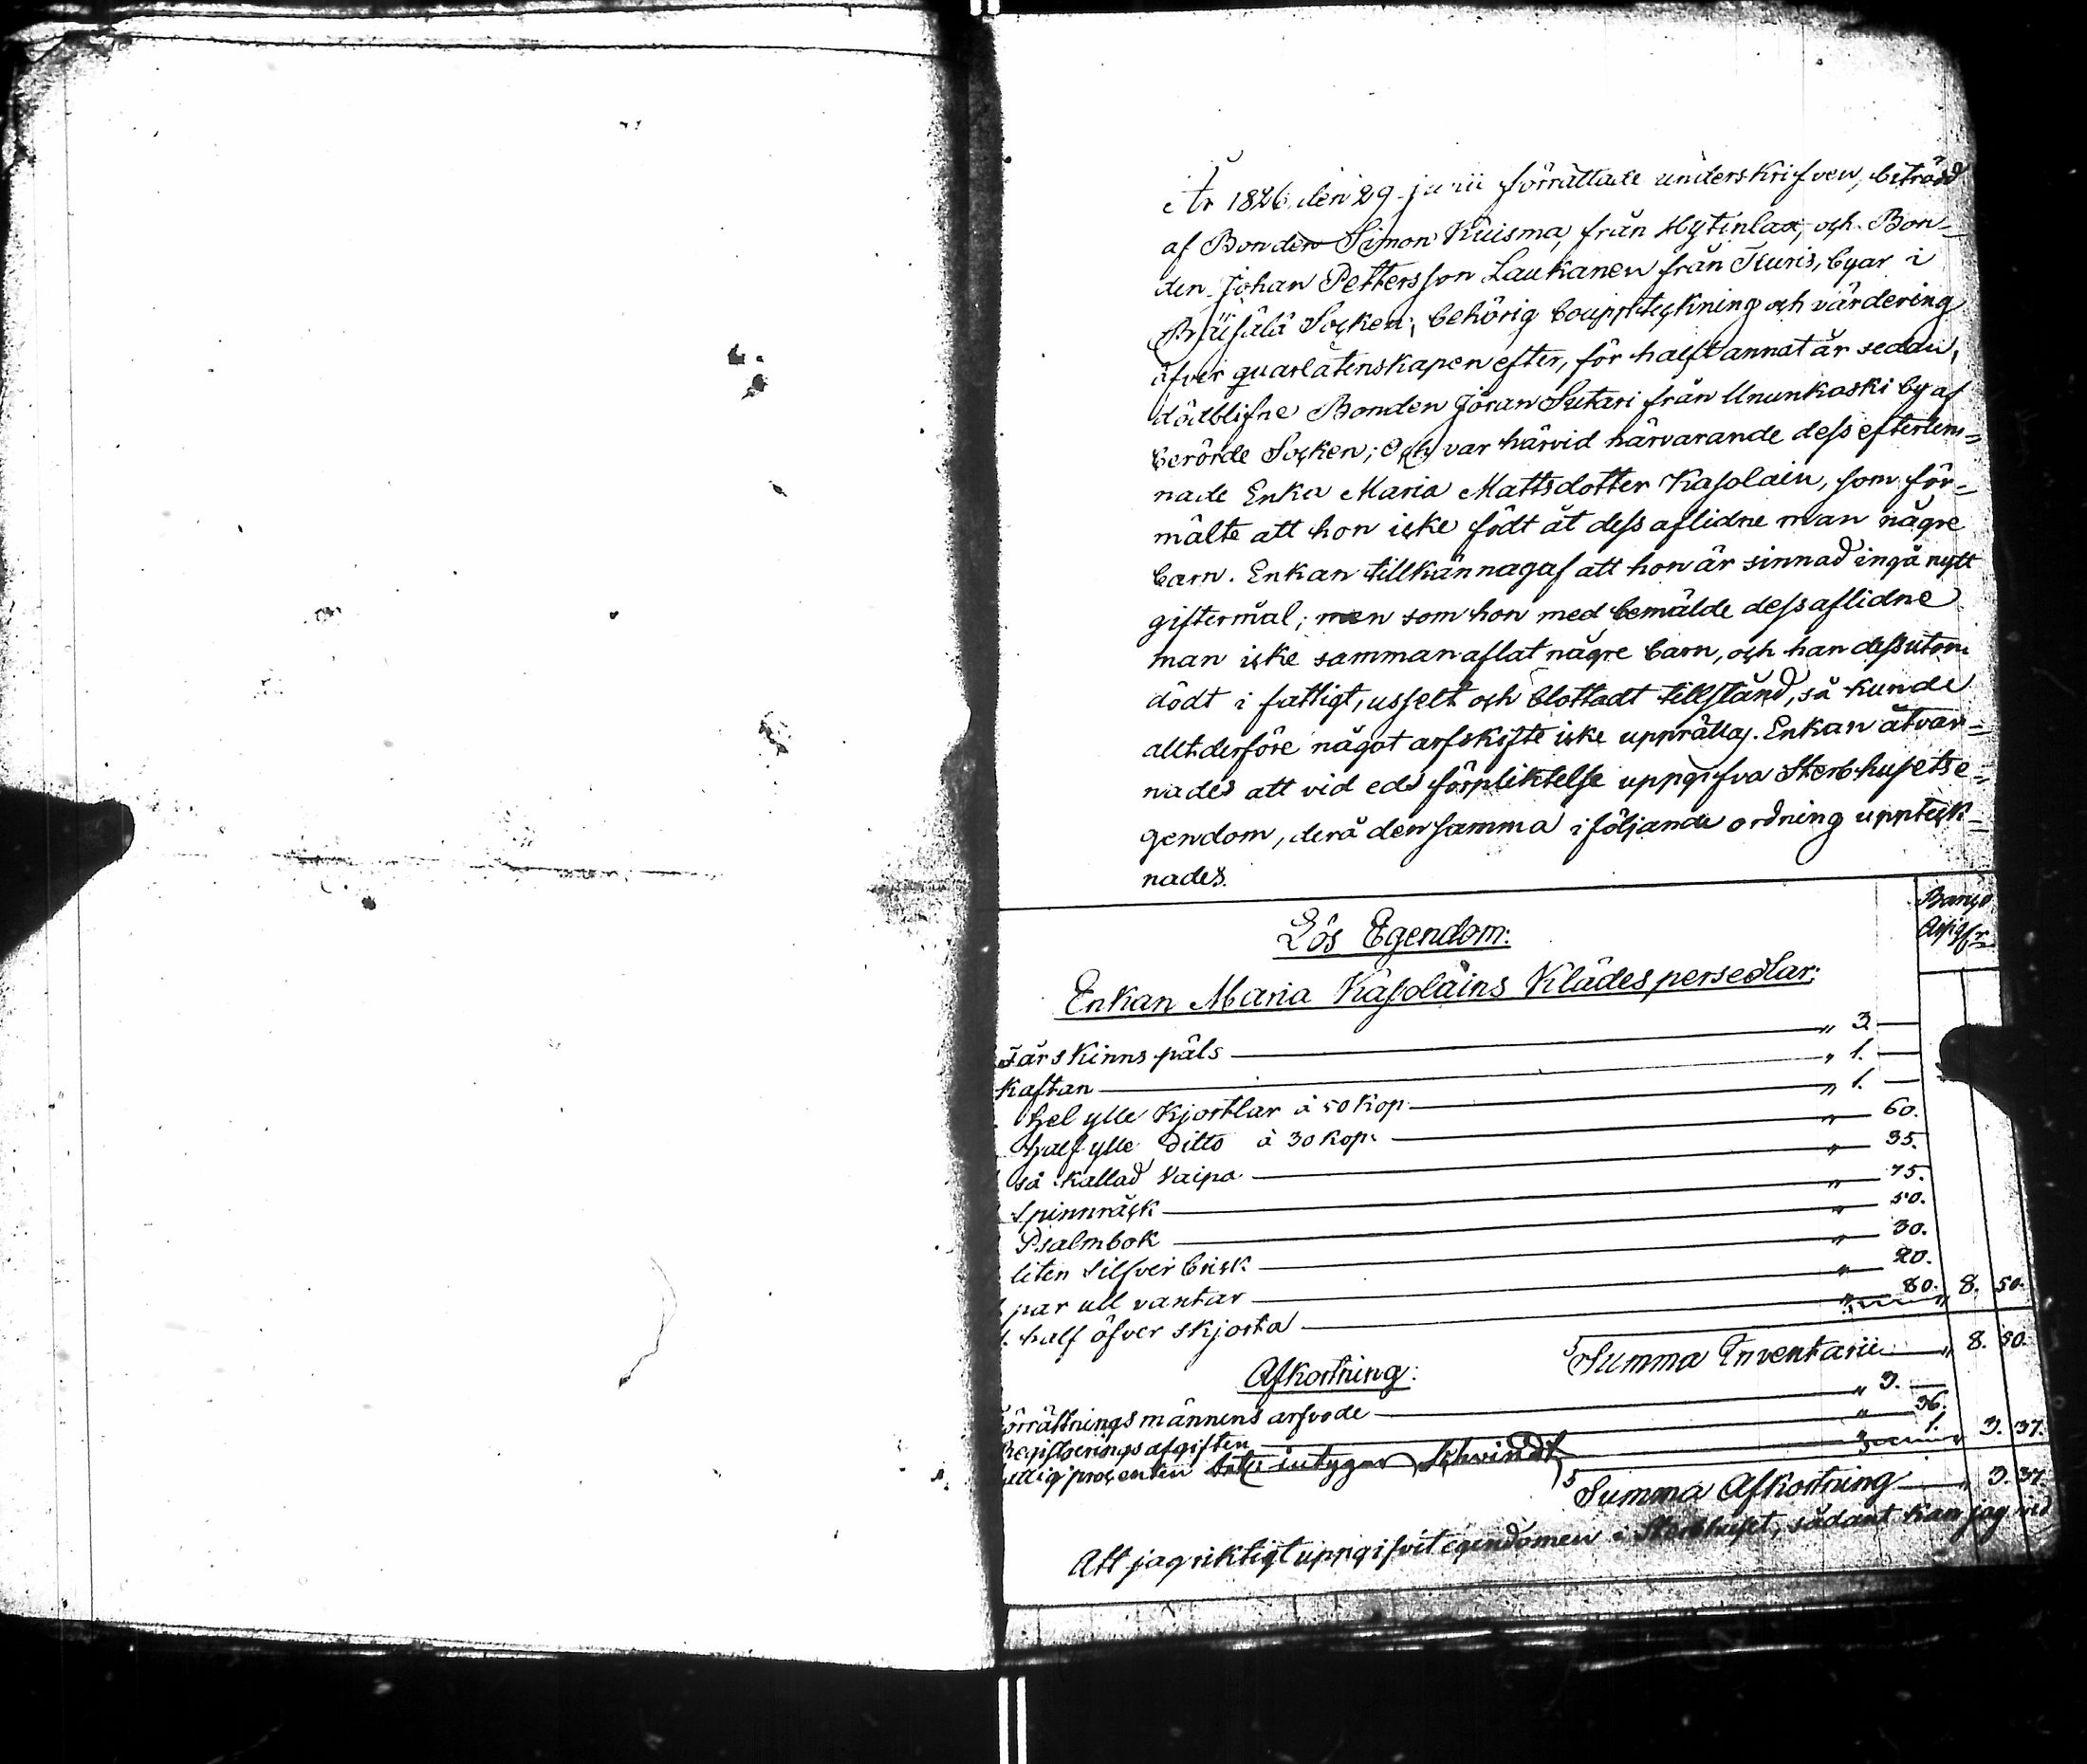 År 1826 den 29 junii förrättade underskrifven, biträdd
af Bonden Simon Kuisma, från Hytinlax, och Bon-
den Johan Pettersson Laukanen från Tiuris, byar i
Pyhäjärvi Socken, behörig bouppteckning och värdering
öfver quarlåtenskapen efter, för halft annat år sedan,
dödblifne Bonden Jöran Sutari från Ununkoski by af
berörde Socken; Och var härvid närvarande dess efterlem-
nade Enka Maria Mattsdotter Kasolain, som för-
mälte att hon icke födt åt dess aflidne man någre
barn. Enkan tillkännagaf att hon är sinnad ingå nytt
giftermål; men som hon med bemälde dess aflidne
man icke sammanaflat någre barn, och han dessutom
dödt i fattigt, usselt och blottadt tillstånd, så kunde
alltderföre något arfskifte icke upprättas. Enkan åtvar-
nades att vid eds förpliktelse uppgifva Sterbhusets e-
gendom, derå densamma i följande ordning uppteck-
nades.
Banco
Assig fr
Lös Egendom:
Enkan Maria Kasolains Klädespersedlar:
Fårskinns päls " 3. —
Kaftan " 1. —
hel ylle Kjortlar à 50 Kop " 1. —
half ylle ditto à 30 Kop: " 60.
så kallad Vaipa " 35.
Spinnråck " 75.
Psalmbok " 50.
liten Silfver brisk " 30.
par ull vantar " 20.
1. half öfver skjorta " 80. 8. 50.
Summa Inventarii " 8. 50.
Afkortning:
Förrättningsmännens arfvode " 3. —
Registreringsafgiften " 36.
fattig procenten intygar Schvindt 1. 3. 37.
Summa Afkortning " 3. 37.
Att jag riktigt uppgifvit egendomen i Sterbhuset, sådant kan jag vid